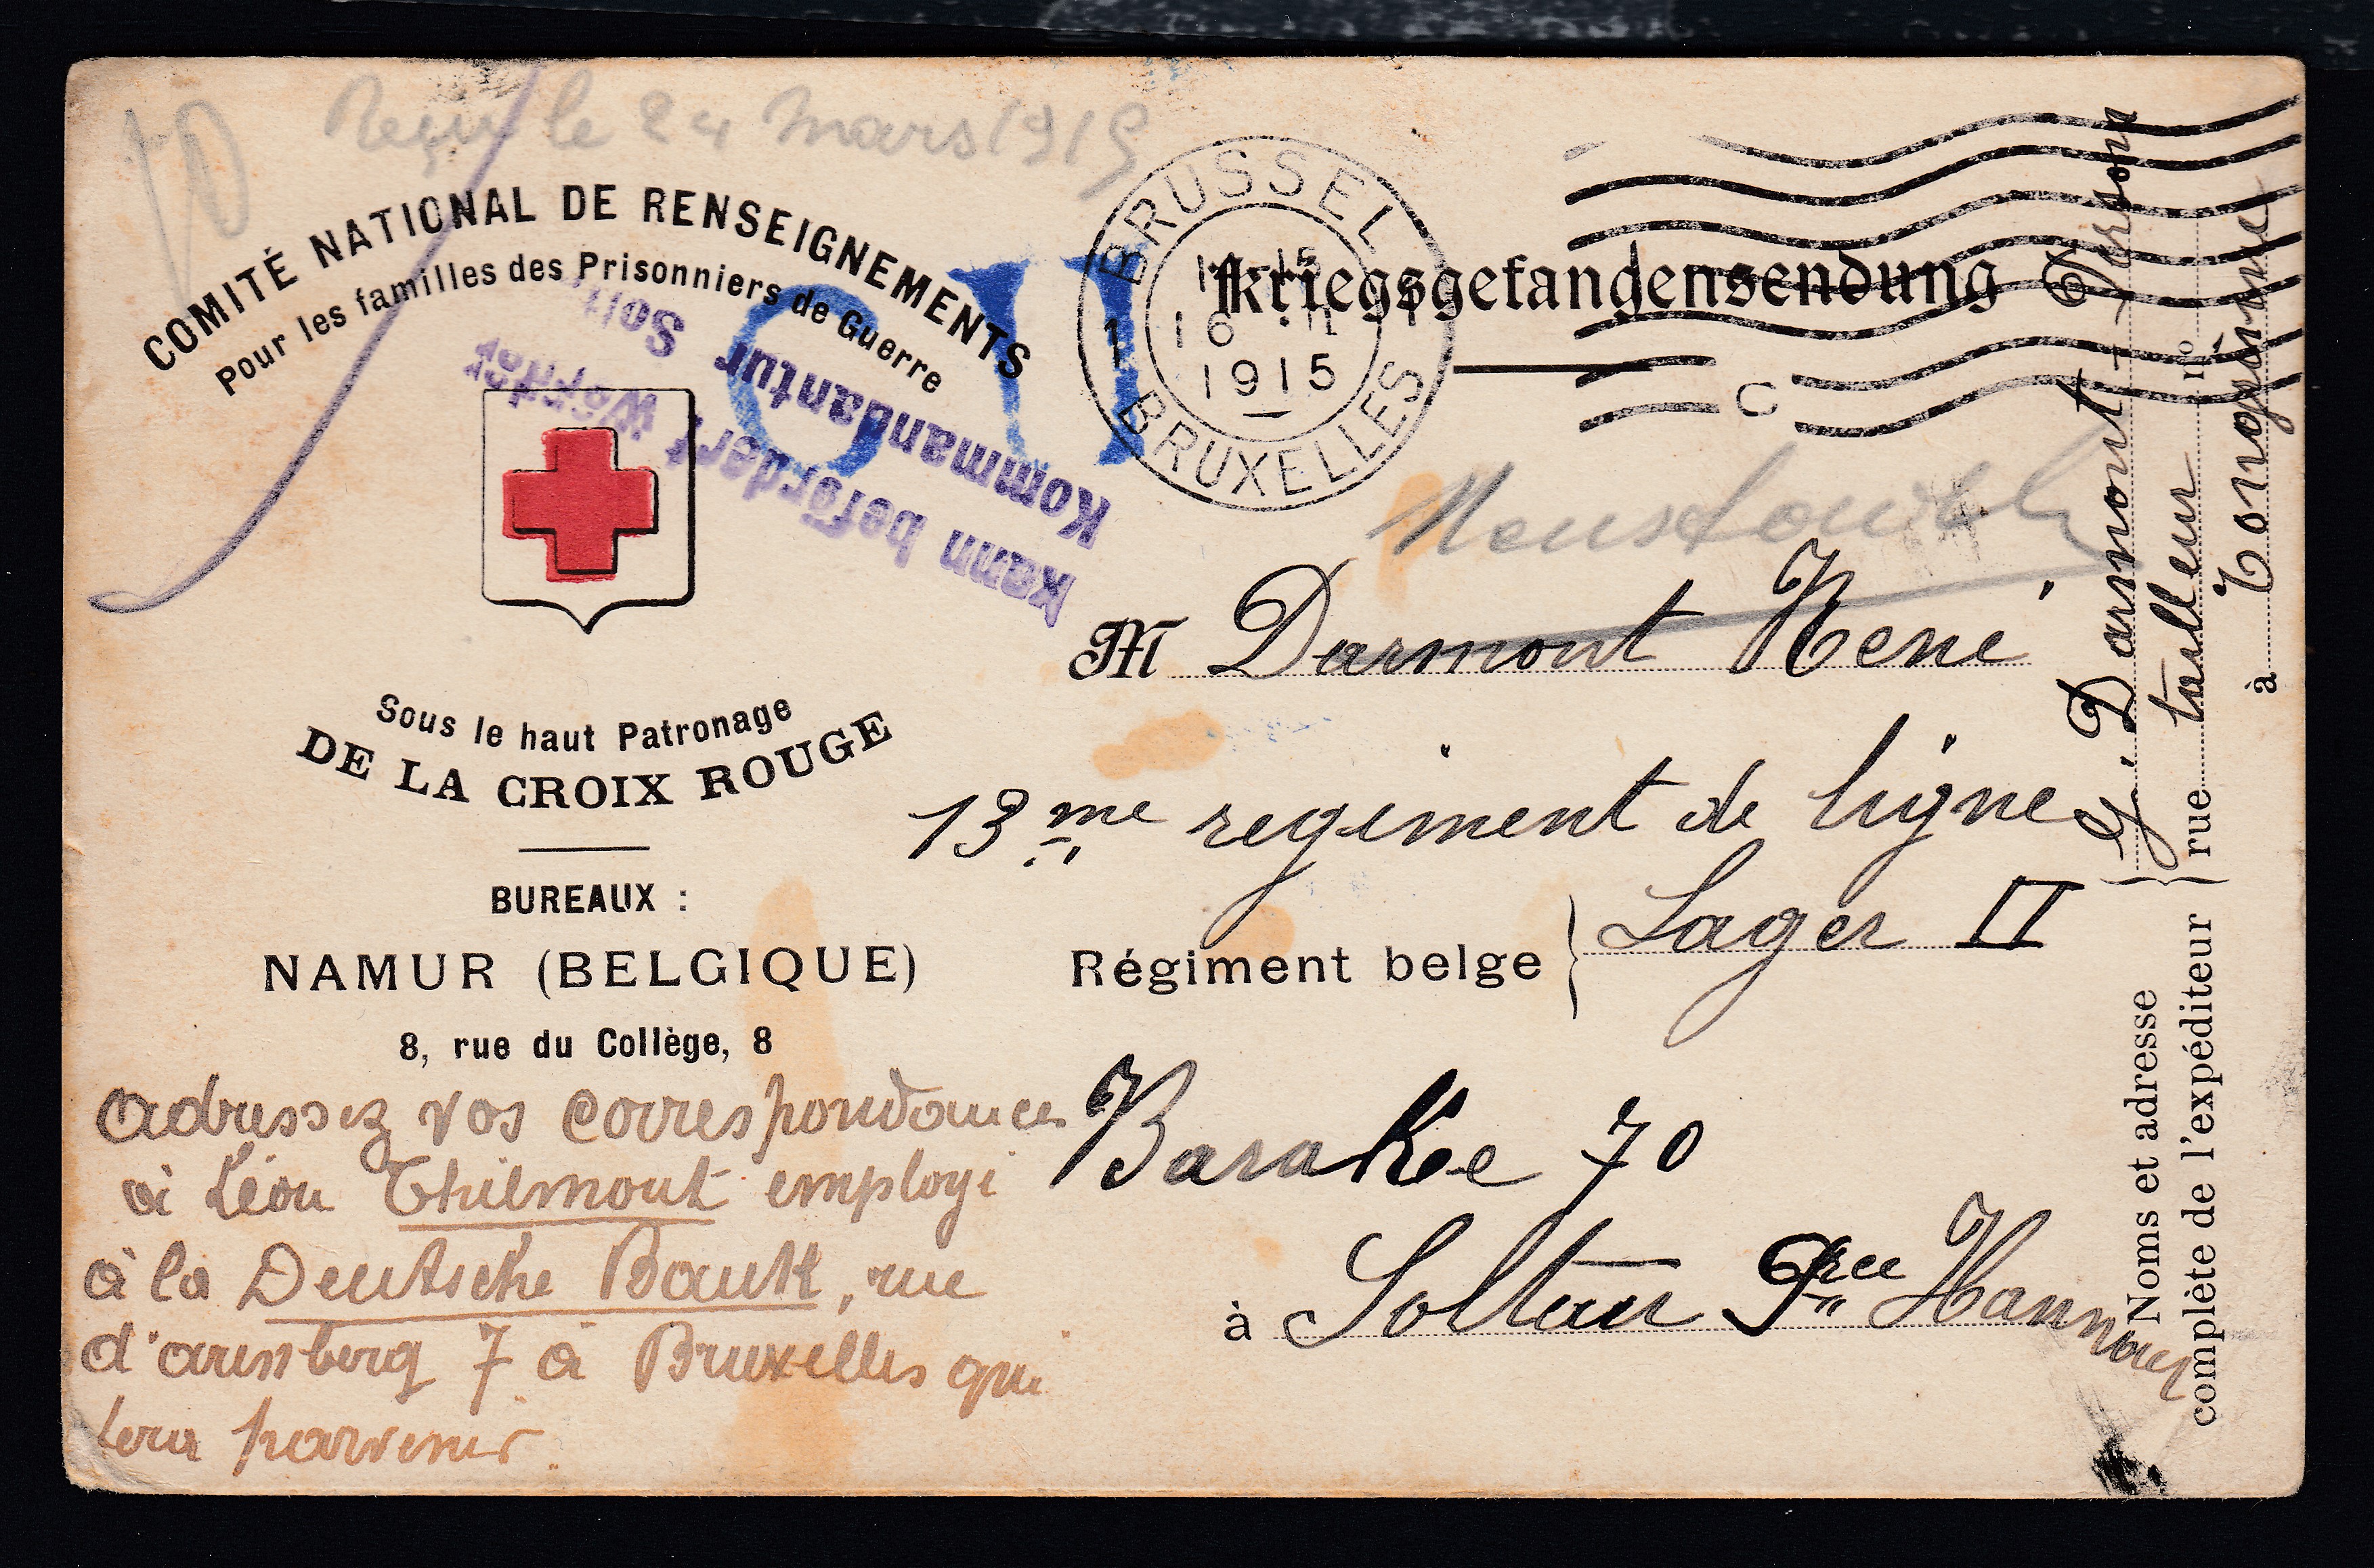 Reçu le 24 Mars 1915
COMITÉ NATIONAL DE RENSEIGNEMENTS
Pour les familles des Prisonniers de Guerre
Sous le haut Patronage
DE LA CROIX ROUGE
BUREAUX :
NAMUR (BELGIQUE)
8, rue du Collège, 8
adressez vos correspondances
à Léon Thiémont employé
à la Deutsche Bank, rue
d'arenberg 7 à Bruxelles qui
fera parvenir.
Kommandantur
kann befördert werden
BRUSSEL
1915
BRUXELLES
1
C
Kriegsgefangensendung
M Darmont René
13me regiment de ligne
Régiment belge } Lager II
Barakke 70
à Soltau Pce Hannover
Noms et adresse
complète de l'expéditeur
Darmont
rue tailleur no
à Longérinne